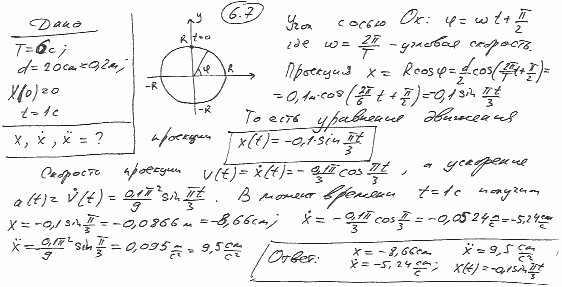 6.7
Дано
T=6c;
d=20см=0,2м;
X(0)=0
t=1c
x, ẋ, ẍ = ?
y
t=0
R
φ
R
x
-R
-R
Угол с осью Ox: φ = ωt + π/2
где ω = 2π/T - угловая скорость.
Проекция x = Rcosφ = d/2 cos(2π/T t + π/2) =
= 0,1м·cos(2π/6 t + π/2) = -0,1 sin πt/3
То есть уравнение движения
проекции x(t) = -0,1·sin πt/3
Скорость проекции v(t) = ẋ(t) = -0,1π/3 cos πt/3, а ускорение
a(t) = v̇(t) = 0,1π²/9 sin πt/3. В момент времени t=1c получим
x = -0,1 sin π/3 = -0,0866 м = -8,66см; ẋ = -0,1π/3 cos π/3 = -0,0524 м/с = -5,24 см/с
ẍ = 0,1π²/9 sin π/3 = 0,095 м/с² = 9,5 см/с²
Ответ: x = -8,66см ẍ = 9,5 см/с²
ẋ = -5,24 см/с; x(t) = -0,1 sin πt/3